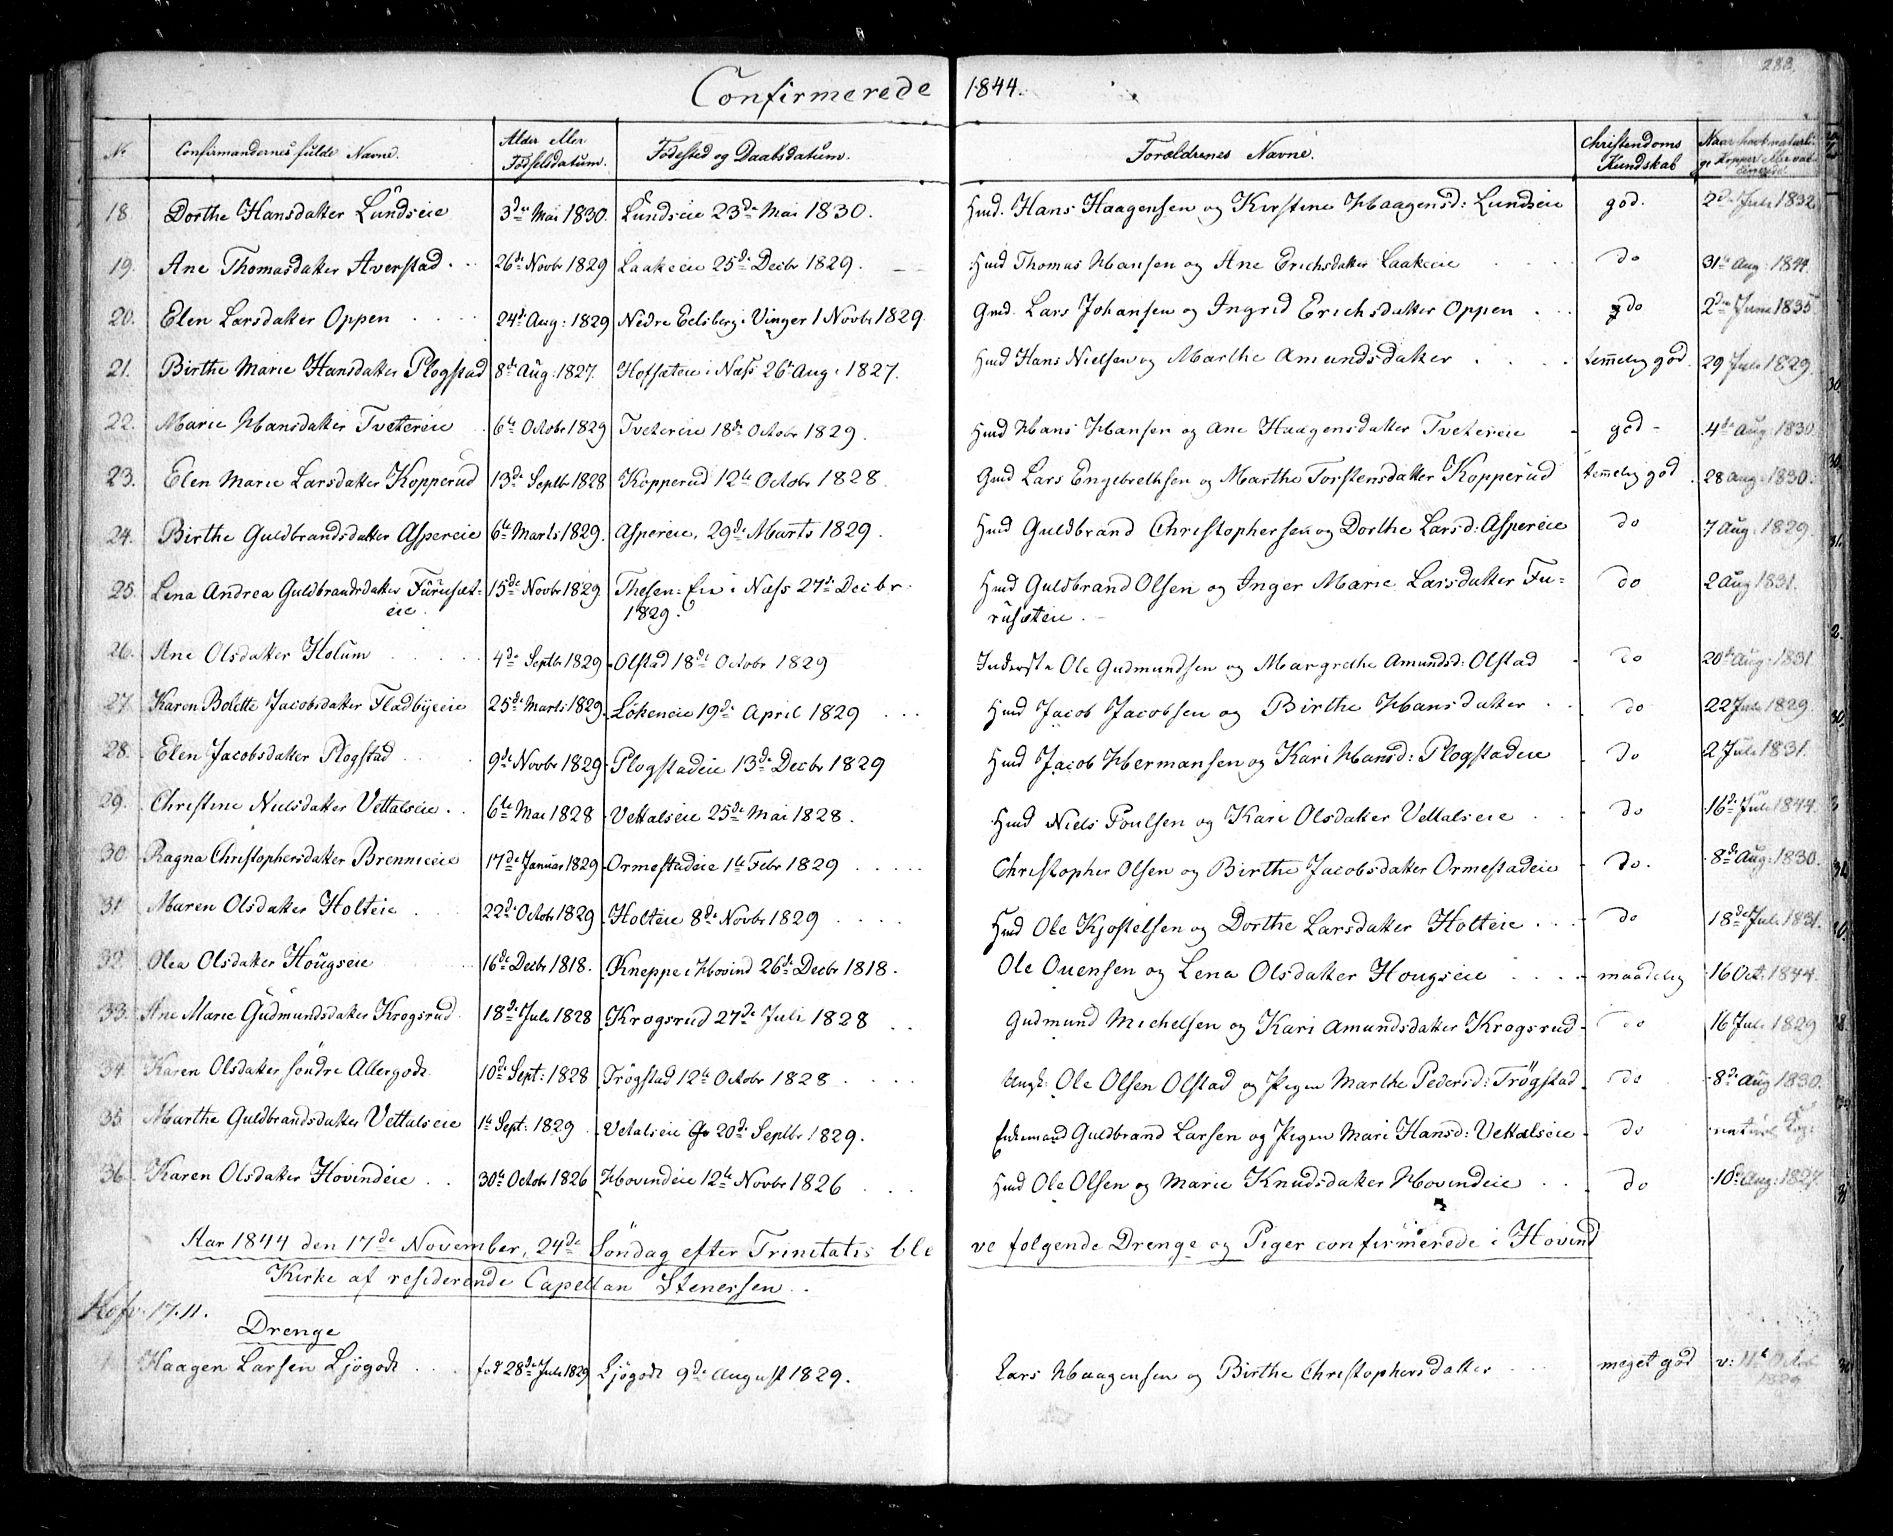 Confirmerede 1844.
288.
No Confirmandernes fulde Navne. Alder eller Fødselsdatum. Fødested og Daabsdatum. Forældrenes Navne. Christendoms Kundskab Naar havt naturlige Kopper eller vaccinerede
18. Dorthe Hansdatter Lundseie 3die Mai 1830. Lundseie 23de Mai 1830. Hmd. Hans Haagensen og Kirstine Haagensd: Lundseie god. 2de Juli 1832
19. Ane Thomasdatter Averstad 26de Novbr 1829 Laakeeie 25de Decbr 1829. Hmd Thomas Hansen og Ane Erichsdatter Laakeeie do 31te Aug: 1844
20. Elen Larsdatter Oppen 24de Aug: 1829 Nedre Eelsberg i Vinger 1 Novbr 1829. Gmd. Lars Johansen og Ingrid Erichsdatter Oppen do 2den Juni 1835
21. Birthe Marie Hansdatter Plogstad 8de Aug: 1827. Hofsæteie i Næss 26de Aug: 1827. Hmd Hans Nielsen og Marthe Amundsdatter temmelig god 29 Juli 1829.
22. Marie Hansdatter Tvetereie 6te Octobr 1829 Tvetereie 18de Octobr 1829. Hmd Hans Hansen og Ane Haagensdatter Tvetereie god 4de Aug: 1830.
23. Elen Marie Larsdatter Kopperud 13de Septbr 1828 Kopperud 12te Octobr 1828. Gmd Lars Engebrethsen og Marthe Torstensdatter Kopperud temmelig god 28 Aug: 1830.
24. Birthe Guldbrandsdatter Aspereie 6te Marts 1829. Aspereie, 29de Marts 1829. Hmd Guldbrand Christophersen og Dorthe Larsd: Aspereie do 7 Aug: 1829.
25. Lina Andrea Guldbrandsdatter Furusæt- 15de Novbr 1829 Thesen-Eie i Næss 27de Decbr. Hmd Guldbrand Olsen og Inger Marie Larsdatter Fu- do 2 Aug 1831.
eie. 1829. rusæteie.
26. Ane Olsdatter Holum 4de Septbr 1829 Olstad 18de Octobr 1829 Inderst Ole Gudmundsen og Margrethe Amundsd: Olstad do 20de Aug: 1831
27. Karen Bolette Jacobsdatter Fladbyeeie 25de Marts 1829. Lökeneie 19de April 1829 Hmd Jacob Jacobsen og Birthe Hansdatter do 22 Juli 1829.
28. Elen Jacobsdatter Plogstad 9de Novbr 1829 Plogstadeie 13de Decbr 1829 Hmd Jacob Hermansen og Kari Hansd: Plogstadeie do 2 Juli 1831.
29. Christine Nielsdatter Vettalseie 6te Mai 1828 Vettalseie 25de Mai 1828. Hmd Niels Poulsen og Kari Olsdatter Vettalseie do 16de Juli 1844.
30. Ragna Christophersdatter Brennieeie 17de Januar 1829 Ormestadeie 1te Febr 1829 Christopher Olsen og Birthe Jacobsdatter Ormestadeie do. 8de Aug: 1830.
31 Maren Olsdatter Holteie 22de Octobr 1829 Holteie 8de Novbr 1829 Hmd Ole Kjostelsen og Dorthe Larsdatter Holteie do 18de Juli 1831.
32 Olea Olsdatter Hougseie 16de Decbr 1818. Kneppe i Hovind 26de Decbr 1818. Ole Ouensen og Lena Olsdatter Hougseie maadelig 16 Oct: 1844.
33. Ane Marie Gudmundsdatter Krogsrud 18de Juli 1828 Krogsrud 27de Juli 1828 Gudmund Michelsen og Kari Amundsdatter Krogsrud do 16 Juli 1829
34. Karen Olsdatter söndre Allergodt 10de Sept: 1828 Trögstad 12te Octobr 1828 Ungk: Ole Olsen Olstad og Pigen Marthe Pedersd: Trögstad do 8de Aug 1830.
35. Marthe Guldbrandsdatter Vettalseie 1te Sept: 1829 Vetalseie 20de Septbr 1829. Enkemand Guldbrand Larsen og Pigen Mari Hansd: Vettalseie do naturl. Kop:
36. Karen Olsdatter Hovindeie 30te Octobr 1826 Hovindeie 12te Novbr 1826 Hmd Ole Olsen og Marie Knudsdatter Hovindeie do 10de Aug: 1827.
Aar 1844 den 17de November, 24de Söndag efter Trinitatis ble ve folgende Drenge og Piger confirmerede i Hovind
Kirke af residerende Capellan Stenersen.
Kofv. 17.11.
Drenge
1 Haagen Larsen Ljögodt fød 28de Juli 1829 Ljögodt 9de August 1829. Lars Haagensen og Birthe Christophersdatter meget god v: 11te Octbr
1829